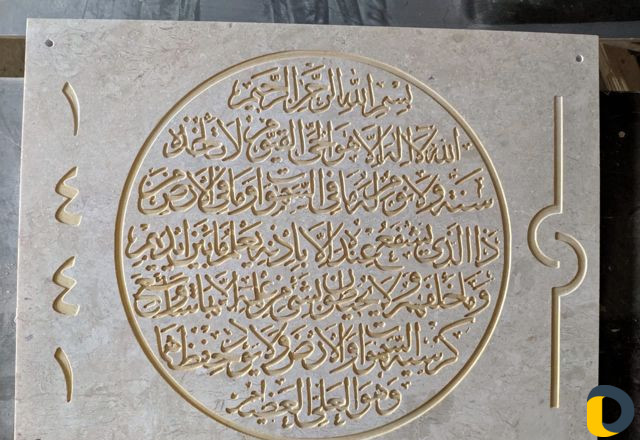 بسم الله الرحمن الرحيم
الله لا إله إلا هو الحي القيوم لا تأخذه
سنة ولا نوم له ما في السموات وما في الأرض من
ذا الذي يشفع عنده إلا بإذنه يعلم ما بين أيديهم
وما خلفهم ولا يحيطون بشيء من علمه إلا بما شاء وسع
كرسيه السموات والأرض ولا يؤده حفظهما
وهو العلي العظيم
١٤٤١